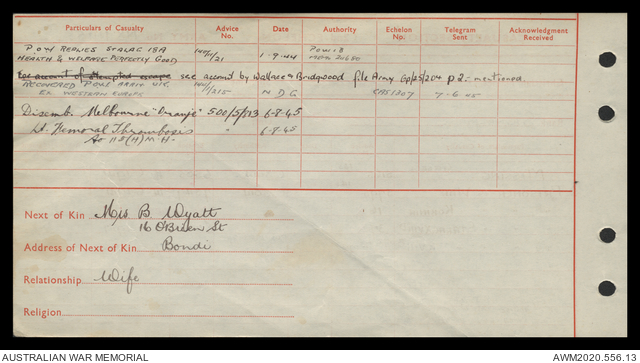 Particulars of Casualty Advice No. Date Authority Echelon No. Telegram Sent Acknowledgment Received
P.O.W REPLIES STALAG 18A
HEALTH & WELFARE PERFECTLY GOOD 1-9-44 POWIB
For account of attempted escape see account by Wallace & Bridgwood file Army Gp/25/204 p 2 - mentioned.
RECOVERED P.O.W. ARRIV U.K. N D G CAS1307 7-6-45
EX WESTERN EUROPE /215
Disemb. Melbourne "Oranje" 500/5/173 6-8-45
Lt Femoral Thrombosis " 6-8-45
to 115 (H) M.H.
Next of Kin Mrs B. Wyatt
16 O'Brien St
Address of Next of Kin Bondi
Relationship Wife
Religion
AUSTRALIAN WAR MEMORIAL AWM2020.556.13